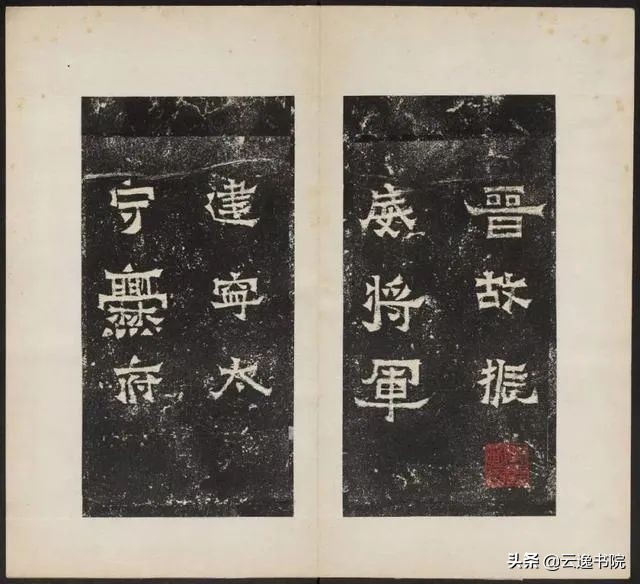 晉故振
威將軍
建寧太
守爨府
头条 @云逸书院